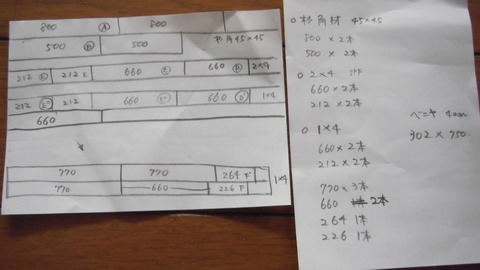 800 Ⓐ 800
500 Ⓑ 500 杉角45×45
212 Ⓔ 212 E 660 Ⓔ 660 Ⓓ 2×4
212 212 660 660 1×4
660
770 770 264 F
770 660 226 F 1×4
○杉角材 45×45
800×2本
500×2本
○2×4
660×2本
212×2本
○1×4
660×2本
212×2本
770×3本
660 2本
264 1本
226 1本
ベニヤ 4mm
302×750